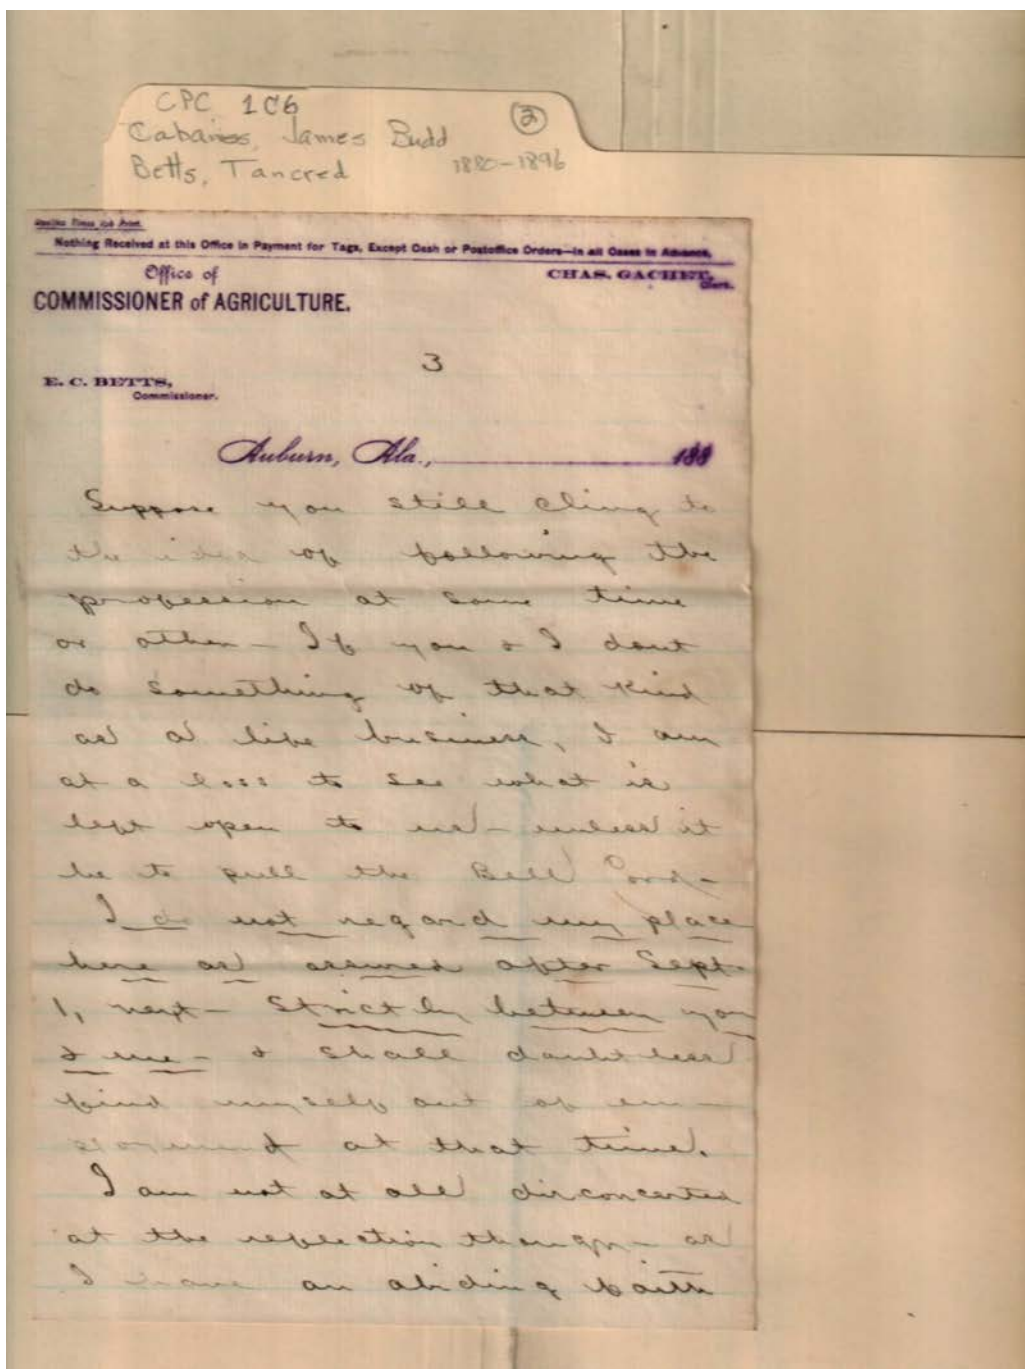 CPC 1C6
Cabaniss, James Budd
2
Betts, Tancred
1880-1896
Nothing Received at this Office in Payment for Tags, Except Cash or Postoffice Orders—in all Cases in Advance.
Office of
CHAS. GACHET,
Clerk.
COMMISSIONER of AGRICULTURE.
3
E. C. BETTS,
Commissioner.
Auburn, Ala., 188
Suppose you still cling to
the idea of following the
profession at some time
or other - If you & I dont
do something of that kind
as a life business, I am
at a loss to see what is
left open to us - unless it
be to pull the Bell Cord -
I do not regard my place
here as assured after Sept.
1, next - Strictly between you
& me - I shall doubtless
find myself out of em-
ployment at that time.
I am not at all disconcerted
at the reflection though - as
I have an abiding faith